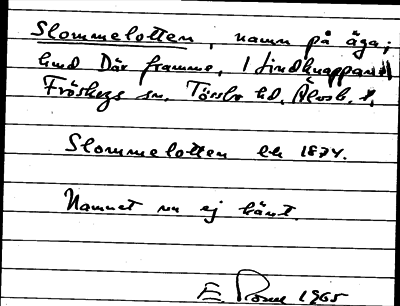 Slommelotten, namn på äga;
hmd Där framme, 1 Lindknappan
Fröskogs sn, Tössbo hd, Älvsb. l.
Slommelotten lh 1874.
Namnet nu ej känt.
E. 1965